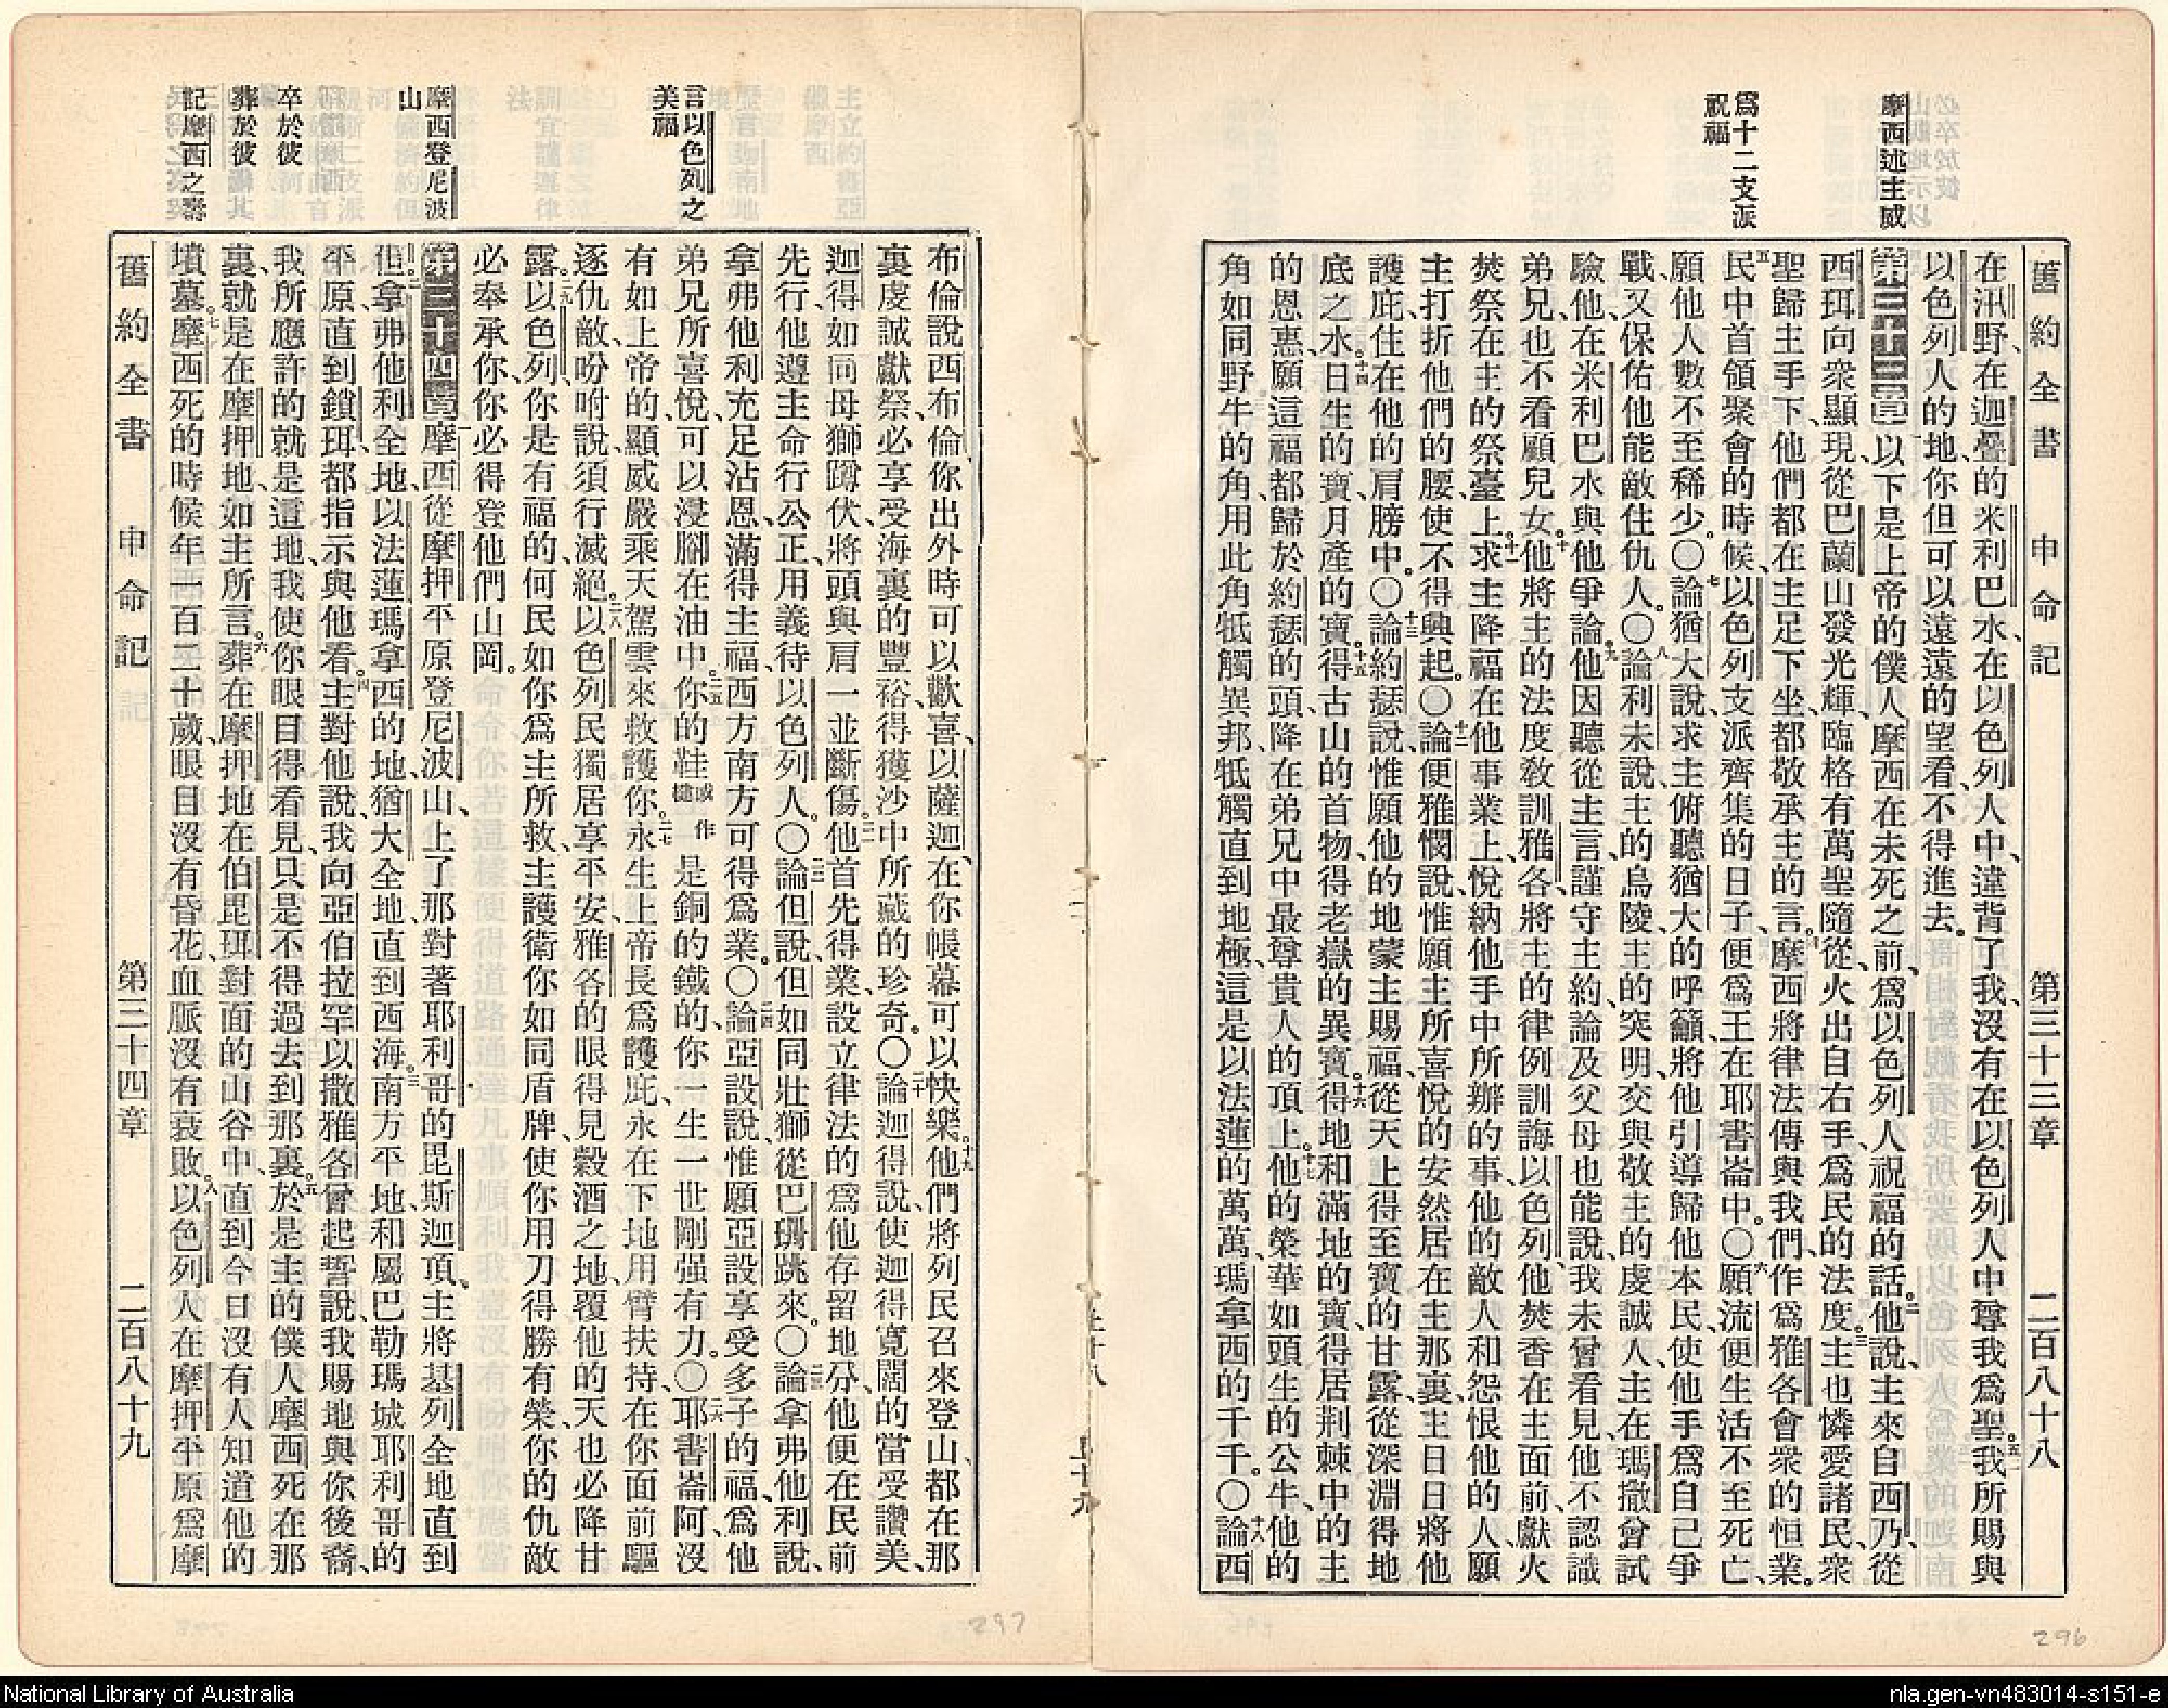 摩西述主威
爲十二支派
祝福
舊約全書　申命記　第三十三章　二百八十八
在汛野、在迦疊的米利巴水、在以色列人中、違背了我、沒有在以色列人中尊我爲聖。五二我所賜與
以色列人的地、你但可以遠遠的望看、不得進去。
第三十三章　一以下是上帝的僕人摩西在未死之前、爲以色列人祝福的話。二他說、主來自西乃、從
西珥向衆顯現、從巴蘭山發光輝、臨格有萬聖隨從、火出自右手、爲民的法度。三主也憐愛諸民、衆
聖歸主手下、他們都在主足下坐、都敬承主的言。四摩西將律法傳與我們、作爲雅各會衆的恒業。
五民中首領聚會的時候、以色列支派齊集的日子、便爲王在耶書崙中。〇六願流便生活不至死亡、
願他人數不至稀少。〇七論猶大說、求主俯聽猶大的呼籲、將他引導歸他本民、使他手爲自己爭
戰、又保佑他能敵住仇人。〇八論利未說、主的烏陵、主的突明、交與敬主的虔誠人、主在瑪撒曾試
驗他、在米利巴水與他爭論。九他因聽從主言、謹守主約、論及父母也能說、我未曾看見、他不認識
弟兄、也不看顧兒女。十他將主的法度敎訓雅各、將主的律例訓誨以色列、他焚香在主面前、獻火
焚祭在主的祭臺上。十一求主降福在他事業上、悅納他手中所辦的事、他的敵人和怨恨他的人、願
主打折他們的腰、使不得興起。〇十二論便雅憫說、惟願主所喜悅的安然居在主那裏、主日日將他
護庇、住在他的肩膀中。〇十三論約瑟說、惟願他的地蒙主賜福、從天上得至寶的甘露、從深淵得地
底之水。十四日生的寶、月產的寶。十五得古山的首物、得老嶽的異寶。十六得地和滿地的寶、得居荆棘中的主
的恩惠、願這福都歸於約瑟的頭、降在弟兄中最尊貴人的頂上。十七他的榮華如頭生的公牛、他的
角如同野牛的角、用此角牴觸異邦、牴觸直到地極、這是以法蓮的萬萬、瑪拿西的千千。〇十八論西
言以色列之
美福
摩西登尼波
山
卒於彼
葬於彼
記摩西之壽
布倫說、西布倫你出外時可以歡喜、以薩迦在你帳幕可以快樂。十九他們將列民召來登山、都在那
裏虔誠獻祭、必享受海裏的豐裕、得獲沙中所藏的珍奇。〇二十論迦得說、使迦得寬闊的當受讚美、
迦得如同母獅蹲伏、將頭與肩一並斷傷。二一他首先得業、設立律法的爲他存留地分、他便在民前
先行、他遵主命行公正、用義待以色列人。〇二二論但說、但如同壯獅從巴珊跳來。〇二三論拿弗他利說、
拿弗他利充足沾恩、滿得主福、西方南方可得爲業。〇二四論亞設說、惟願亞設享受多子的福、爲他
弟兄所喜悅、可以浸腳在油中。二五你的鞋或作楗是銅的鐵的、你一生一世剛强有力。〇二六耶書崙阿、沒
有如上帝的、顯威嚴乘天駕雲來救護你。二七永生上帝長爲護庇、永在下地用臂扶持、在你面前驅
逐仇敵、吩咐說、須行滅絕。二八以色列民獨居享平安、雅各的眼得見穀酒之地、覆他的天也必降甘
露。二九以色列、你是有福的、何民如你爲主所救、主護衛你如同盾牌、使你用刀得勝有榮、你的仇敵
必奉承你、你必得登他們山岡。
第三十四章　一摩西從摩押平原登尼波山、上了那對著耶利哥的毘斯迦頂、主將基列全地直到
但。二拿弗他利全地、以法蓮瑪拿西的地、猶大全地、直到西海。三南方平地、和屬巴勒瑪城耶利哥的
平原、直到鎖珥、都指示與他看。四主對他說、我向亞伯拉罕以撒雅各曾起誓說、我賜地與你後裔、
我所應許的就是這地、我使你眼目得看見、只是不得過去到那裏。五於是主的僕人摩西死在那
裏、就是在摩押地、如主所言。六葬在摩押地、在伯毘珥對面的山谷中、直到今日沒有人知道他的
墳墓。七摩西死的時候年一百二十歲、眼目沒有昏花、血脈沒有衰敗。八以色列人在摩押平原爲摩
舊約全書　申命記　第三十四章　二百八十九
297
296
National Library of Australia
nla.gen-vn483014-s151-e